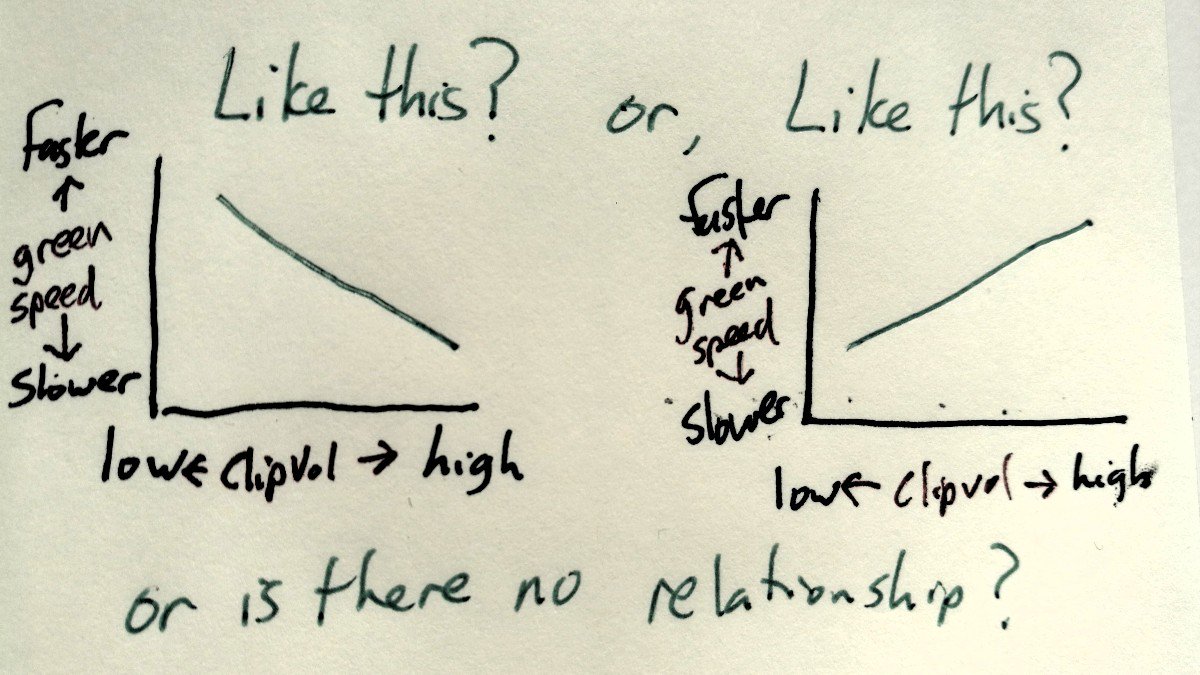 Like this? or, Like this?
faster
↑
green
speed
↓
slower
low ← clipvol → high
faster
↑
green
speed
↓
slower
low ← clipvol → high
or is there no relationship?